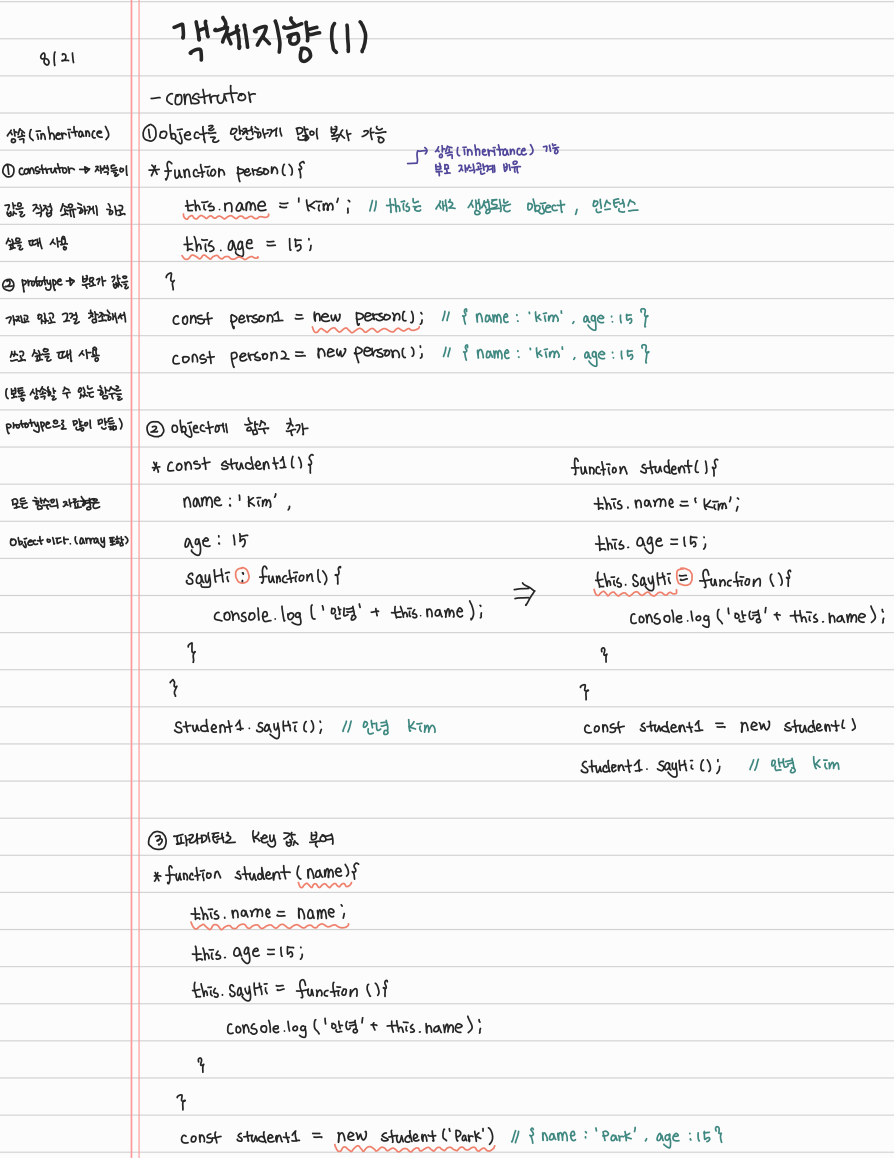 객체지향(1)
8/21
- construtor
상속(inheritance)
① construtor → 자식들이
값을 직접 소유하게 하고
싶을 때 사용
② prototype → 부모가 값을
가지고 있고 그걸 참조해서
쓰고 싶을 때 사용
(보통 상속할 수 있는 함수를
prototype으로 많이 만듦)
모든 함수의 자료형은
Object이다. (array 포함)
① object를 안전하게 많이 복사 가능
상속(inheritance) 기능
부모 자식관계 비유
* function person(){
this.name = 'kim'; // this는 새로 생성되는 object, 인스턴스
this.age = 15;
}
const person1 = new person(); // { name : 'kim', age : 15 }
const person2 = new person(); // { name : 'kim', age : 15 }
② object에 함수 추가
* const student1(){
name : 'kim',
age : 15
sayHi : function(){
console.log('안녕' + this.name);
}
}
Student1.sayHi(); // 안녕 kim
⇒
function student(){
this.name = 'kim';
this.age = 15;
this.sayHi = function(){
console.log('안녕' + this.name);
}
}
const student1 = new student()
Student1.sayHi(); // 안녕 kim
③ 파라미터로 key 값 부여
* function student(name){
this.name = name;
this.age = 15;
this.sayHi = function(){
console.log('안녕' + this.name);
}
}
const student1 = new student('Park') // { name : 'Park', age : 15 }